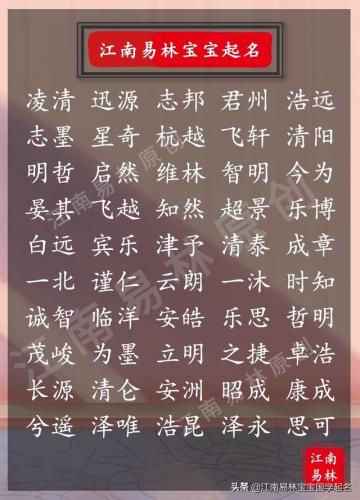 江南易林宝宝起名
凌清 迅源 志邦 君州 浩远
志墨 星奇 杭越 飞轩 清阳
明哲 启然 维林 智明 今为
晏其 飞越 知然 超景 乐博
白远 宾乐 津予 清泰 成章
一北 谨仁 云朗 一沐 时知
诚智 临洋 安皓 乐思 哲明
茂峻 为墨 立明 之捷 卓浩
长源 清仑 安洲 昭成 康成
兮遥 泽唯 浩昆 泽永 思可
江南易林原创
江南易林原创
江南易林原创
江南
易林
头条 @江南易林宝宝国学起名